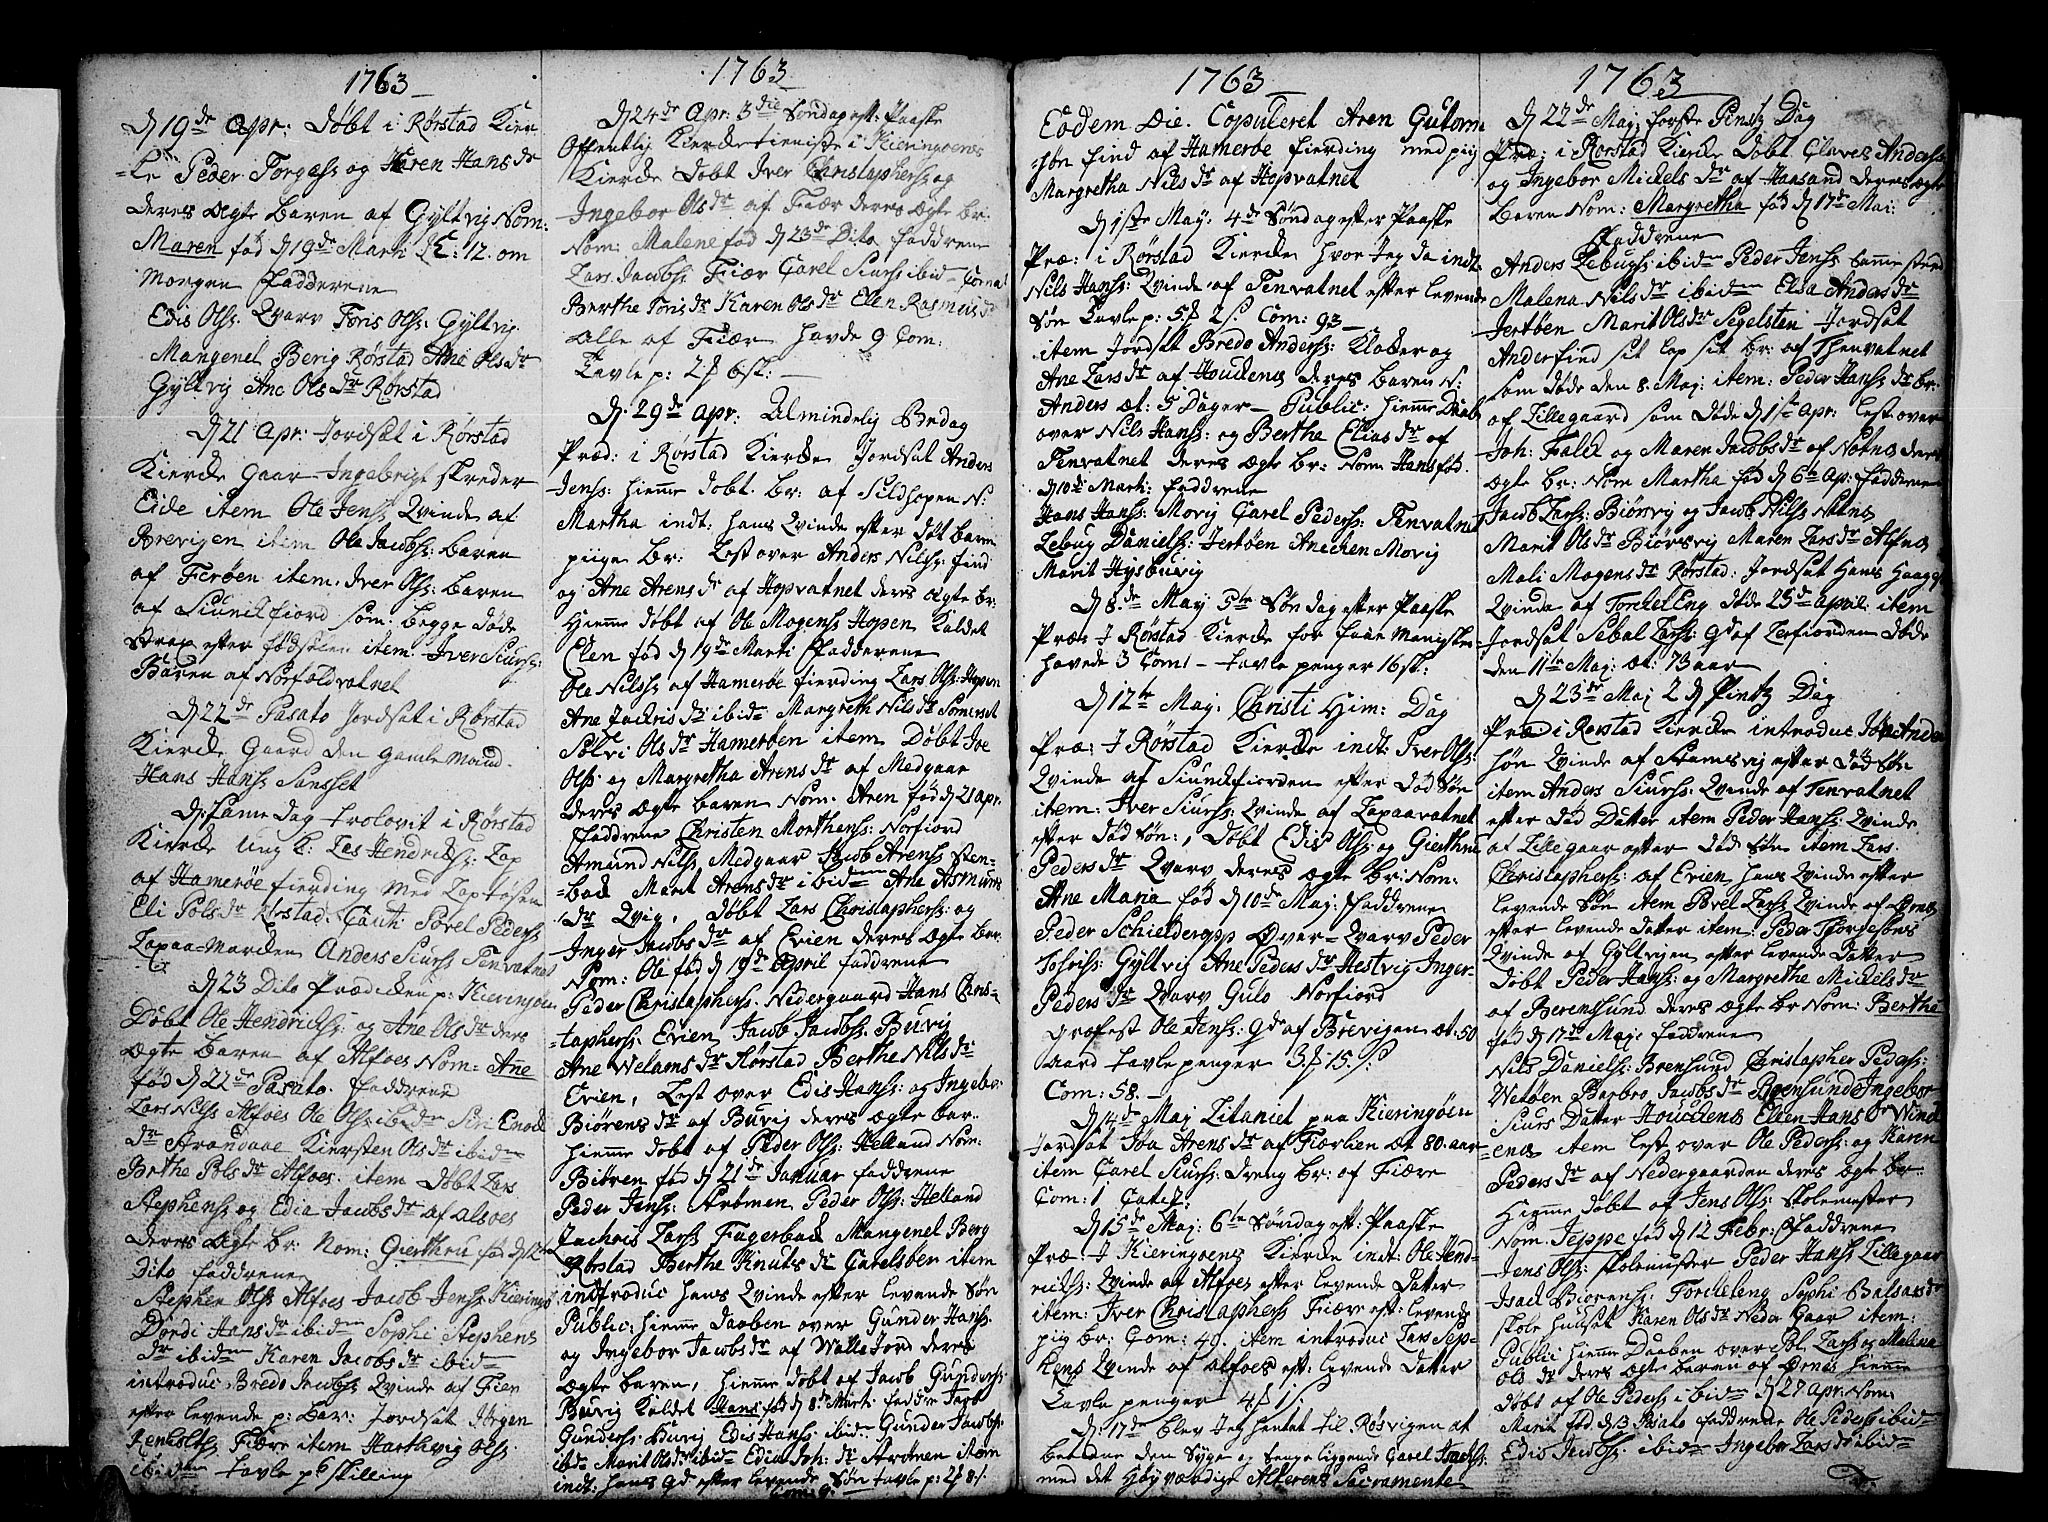 1763
D 19de Apr: Døbt i Rørstad Kier-
-ke Peder Torgers: og Karen Hans dr
deres Ægte Baren af Gyltvig Nom:
Maren fød D 19de Marti Kl: 12. om
Morgen Fadderene
Edis Ols: Qvarv Joris Ols: Gyltvig
Mangenel Berig Rørstad Ane Ols dr
Gyltvig Ane Ols dr Rørstad
D 21 Apr: Jordsat i Rørstad
Kiercke Gaar Ingebrigt Skreder
Eide item Ole Jens: Qvinde af
Brevigen item Ole Jacobs: Baren
af Ferøen item: Iver Ols: Baren
af Siunckfiord som begge døde
Strax efter fødselen item: Iver Siurs:
Baren af Norfoldvatnet
D 22de Pasato Jordsat i Rørstad
Kiercke Gaard den gamle Mand
Hans Hans: Sansset
D: samme Dag trolovit i Rørstad
Kiercke Ung K: Les Hendrichs: Lap
af Hamerøe fierding med Lap tøsen
Eli Pols dr Rørstad. Cauti: Povel Peders:
Lapaa-Marcken Anders Siurs: Tenvatnet
D 23 Dito Prædicken p: Kieringøen
Døbt Ole Hendrichs: og Ane Ols dr deres
Ægte Baren af Alfoes Nom: Ane
fød D 22de Pasato. Faddrene
Lars Nils: Alfoes Ole Ols: ibidm Siri Enocks
dr Strandaae Kiersten Ols dr ibidm
Berthe Pols dr Alfoes. item Døbt Lars
Stephens: og Edia Jacobs dr af Alfoes
deres Ægte br: Nom: Gierthru fød D 12te
Dito Faddrene
Stephen Ols: Alfoes Jacob Jens: Kieringø
Dordi Hans dr ibidm Sophi Stephens
dr ibidm Karen Jacobs dr ibidm
introduc: Bredo Jacobs: Qvinde af Fier
efter levende p: bar: Jordsat Jørgen
Renholts: Fiære item Harthvig Ols:
ibidm Tavle p 6 skilling
1763
D 24de Apr: 3die Søndag eft: Paaske
Offentlig Kierketieniste i Kieringoens
Kiercke Døbt Iver Christaphers: og
Ingebor Ols dr af Fiær deres Ægte br:
Nom: Malene fød D 23de Dito Faddrene
Lars Jacobs: Fiær Carel Siurs: ibidm
Berthe Joris dr Karen Ols dr Elen Rasmus dr
Alle af Fiær havde 9 Com:
Tavle p: 2 6s: —
D: 29de Apr: Almindelig Bededag
Præd: i Rørstad Kiercke Jordsat Anders
Jens: hieme døbt. br: af Sildhopen N:
Martha indt: hans Qvinde efter Døt Baren
piige Br: Lest over Anders Nils: find
og Ane Arens dr af Hopvatnet deres Ægte br:
Hieme døbt af Ole Mogens: Hopen Kaldet
Elen fød D 19de Marti Fadderene
Ole Nils: af Hamerøe fierding Lars Ols: Hopen
Ane Jackris dr ibidm Margreth Nils dr Somerset
Selvi Ols dr Hamerøen item Døbt Joe
Ols: og Margretha Arens dr af Medgaar
deres Ægte Baren Nom. Aren fød D 21 Apr.
Faddrene Christen Morthens: Norfiord
Amund Nils: Medgaar Jacob Arens: Sten-
-bac Marit Arens dr ibidm Ane Asmuns
dr Qvig. Døbt Lars Christaphers: og
Inger Jacobs dr af Evien deres Ægte br:
Nom: Ole fød D 19de April Faddrene
Peder Christaphers: Nedergaard Hans Chris-
-taphers: Evien Jacob Jacobs: Buvig
Ane Welams dr Rørstad Berthe Nils dr
Evien, Lest over Edis Hans: og Ingebor
Biørens dr af Buvig deres Ægte bar:
hieme døbt af Peder Ols: Helland Nom:
Biören fød D 21de Januar Faddrene
Peder Jens: Strömen Peder Ols: Helland
Zachris Lars: Fagerback Mangenel Berg
Rørstad Berthe Knuts dr Carelsben item
indtroduc hans Qvinde efter Levende Søn
Public: hieme Daaben over Gunder Hans:
og Ingebor Jacobs dr af Walle Jord deres
Ægte Baren, hieme døbt af Jacob Gunders:
Buvig Kaldet Hans fød D 8de Mart: Faddr: Jacob
Gunders: Buvig Edis Hans: ibidm Gunder Jacobs:
ibid Marit Ols dr ibidm Edia Joh: dr Strömen item
indt: hans Qd efter levende Søn Tavle p: 2 8s:
Com: 9.
1763
Eodem Die. Copuleret Aren Gutorm
søn find af Hamerøe Fierding med piig
Margretha Nils dr af Hopvatnet
D 1ste May: 4de Søndag efter Paaske
Præ: i Rørstad Kiercke hvor Jeg da indt:
Nils Hans: Qvinde af Tenvatnet efter levende
Søn Tavle p: 5 2s: Com: 93 —
item Jordsat Bredo Anders: Klocker og
Ane Lars dr af Houckenes deres Baren N:
Anders æt: 5 Dager — Public: hieme Daab
over Nils Hans: og Berthe Elias dr af
Tenvatnet deres Ægte br: Nom: Hans fød.
D 10de Mart: Faddrene
Hans Hans: Movig Carel Peders: Tenvatnet
Zebug Daniels: Jertøen Anechen Movig
Marit Hysbuvig
D 8de May 5te Søndag efter Paaske
Præ: I Rørstad Kiercke for faae Meniske
havde 3 Com: — Tavle penger 16sk:
D 12te Maj: Christi Him: Dag
Præ: I Rørstad Kiercke indt: Iver Ols:
Qvinde af Siunckfiorden efter død Søn
item: Iver Siurs: Qvinde af Lapaavatnet
efter død Søn:, Døbt Edis Ols: og Gierthru
Peders dr Qvarv deres Ægte br: Nom:
Ane Maria fød D 10de Maj: Faddrene
Peder Schielderopp Øver-Qvarv Peder
Joris: Gyltvig Ane Peders dr Hestvig Inger
Peders dr Qvarv Gulo Norfiord
Græfest Ole Jens: Qd af Brevigen æt: 50
aard Tavle penger 3 15s:
Com: 58. —
D 14de Maj Litaniet paa Kieringøen
Jordsat Soa Arens dr af Fiærlien æt 80: aar
item Carel Siurs: Dreng br: af Fiære
Com: 1
D 15de Maj: 6te Søndag eft: Paaske
Præ: I Kieringoens Kiercke indt: Ole Hend-
richs: Qvinde af Alfoes efter levende Datter
item: Iver Christaphers: Fiære eft: levende
pig br: Com: 49. item introduc Lars Step-
hens Qvinde af Alfoes eft: levende Datter
Tavle penger 4 1s:
D: 17de blev Jeg hentet til Røsvigen at
betiene den Syge og Senge liggende Carel Isachs:
med det Høyværdige Alterens Sacramente
1763
D 22de Maj første Pinsz Dag
Præ: i Rørstad Kiercke Døbt Claves Anders:
og Ingebor Mickels dr af Haasand deres Ægte
Baren Nom: Margretha fød D 17de Mai:
Faddrene
Anders Zebugs: ibidm Peder Jens: samme sted
Malena Nils dr ibidm Elsa Anders dr
Jertøen Marit Ols dr Segelsten Jordsat
Ander find sit Lap sit br: af Thenvatnet
som døde den 8: Maj: item: Peder Hans: br:
af Lillegaard som døde D 1ste Apr: Lest over
Joh: Falck og Maren Jacobs dr af Nøtnes deres
Ægte br: Nom Martha fød D 6te Ap: Faddrene
Jacob Lars: Biönvig og Jacob Nils: Nøtnes
Marit Ols dr Biörsvig Maren Lars dr Alfnes
Mali Mogens dr Rørstad: Jordsat Hans
Qvinde af TorckelEng døde 25de April: item
Jordsat Sebal Lars: Qd af Lerfiorden døde
den 11te Maj: æt: 73 aar
D 23de Maj 2 D Pintz Dag
Præ: i Rørstad Kiercke introduc Anders
søn Qvinde af Stamsvig efter død Søn
item Anders Siurs: Qvinde af Tenvatnet
efter død Datter item Peder Hans: Qvinde
af Lillegaar efter død Søn item Lars
Christaphers: af Evien hans Qvinde efter
levende Søn item Povel Lars: Qvinde af Ørnes
efter levende Datter item: Peder Thorgersens
Qvinde af Gyltvigen efter levende Datter
Døbt Peder Hans: og Margrethe Mickels dr
af Berensund deres Ægte br Nom: Berthe
fød D 17de Maj: Faddrene
Nils Daniels: Brensund Christapher Peders:
Wetøen Barbro Jacobs dr Brensund Ingebor
Siurs Datter Houckenes Ellen Hans dr Wind-
-enes item lest over Ole Peders: og Karen
Peders dr af Nedergaarden deres Ægte br
Hieme døbt af Jens Ols: Skolemester
Nom: Jeppe fød D 12 Febr: Faddrene
Jens Ols: Skolemester Peder Hans: Lillegaar
Isac Biorens: Torckleng Sophi Balsars dr
Skole huuset Karen Ols dr Neder Gaar item:
Public hieme Daaben over Pol Lars: og Malena
Ols dr deres Ægte Baren af Ørnes hieme
døbt af Ole Peders: ibidm D 27 Apr. Nom:
Marit fød D 13 Pasato Faddrene Ole Peders: ibidm
Edis Jacobs: ibidm Ingebor Lars dr ibidm